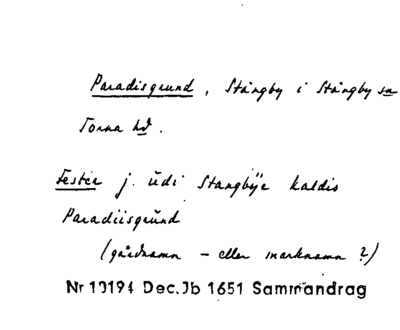 Paradisgrund, Stångby i Stångby sn
Torna hd.
Fester j. üdi Stangbÿe kaldis
Paradiisgrŭnd
(gårdnamn - eller marknamn?)
Nr 10194 Dec.Jb 1651 Sammandrag